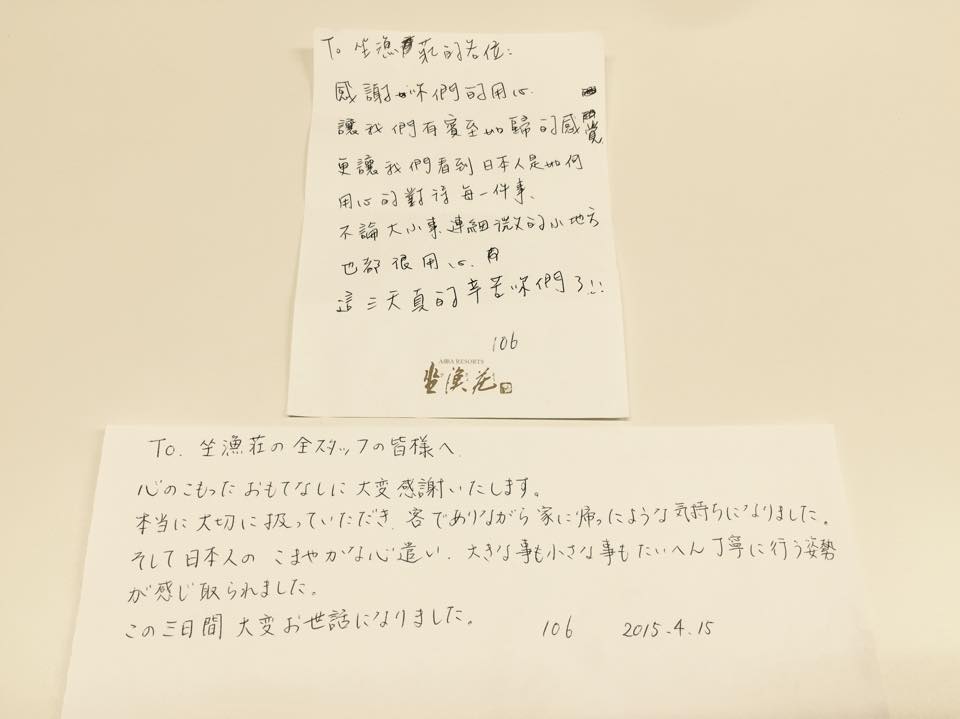 To 坐漁莊的各位:
感謝妳們的用心.
讓我們有賓至如歸的感覺
更讓我們看到日本人是如何
用心的對待每一件事、
不論大小事連細微的小地方
也都很用心.
這三天真的辛苦妳們了!!
106
ABBA RESORTS
坐漁莊
To. 坐漁荘の全スタッフの皆様へ.
心のこもったおもてなしに大変感謝いたします。
本当に大切に扱っていただき、客でありながら家に帰ったような気持ちになりました。
そして日本人の こまやかな心遣い、大きな事も小さな事もたいへん丁寧に行う姿勢
が感じ取られました。
この三日間 大変お世話になりました。
106 2015.4.15